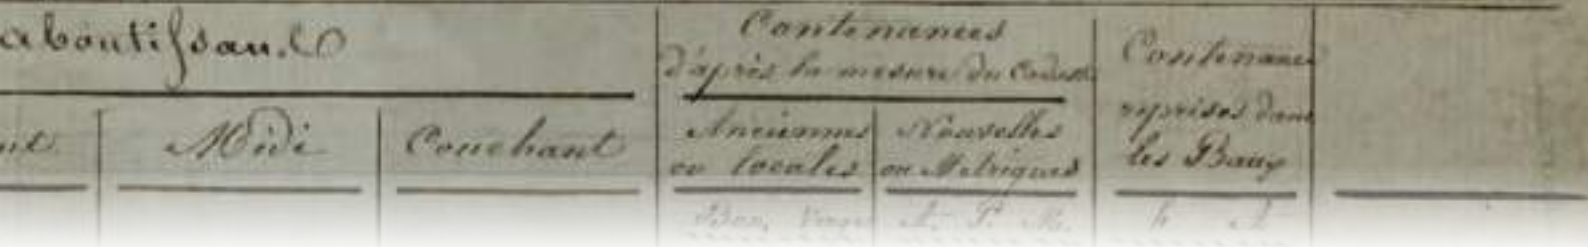 aboutissans
Contenances
d'après la mesure du Cadastre
Contenances
reprises dans
les Baux
Midi
Couchant
Anciennes
ou locales
Nouvelles
ou Métriques
Verges
A. P. M.
h A